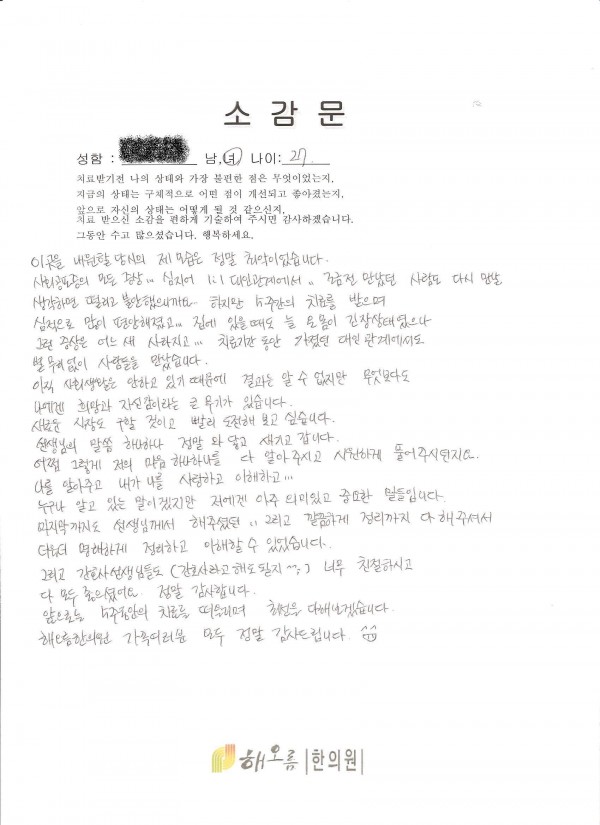 소 감 문
성함 : 남, 녀, 나이: 27.
치료받기전 나의 상태와 가장 불편한 점은 무엇이었는지,
지금의 상태는 구체적으로 어떤 점이 개선되고 좋아졌는지,
앞으로 자신의 상태는 어떻게 될 것 같으신지,
치료 받으신 소감을 편하게 기술하여 주시면 감사하겠습니다.
그동안 수고 많으셨습니다. 행복하세요.
이곳을 내원할 당시의 제 모습은 정말 최악이었습니다.
사회공포증의 모든 증상... 심지어 1:1 대인관계에서.. 조금전 만났던 사람도 다시 만날
생각하면 떨리고 불안했으니까요... 하지만 5주간의 치료를 받으며
심적으로 많이 편안해졌고... 집에 있을때도 늘 온몸이 긴장상태였으나
그런 증상은 어느 새 사라지고... 치료기간 동안 가졌던 대인관계에서도
별 무리없이 사람들을 만났습니다.
아직 사회생활은 안하고 있기 때문에 결과는 알 수 없지만 무엇보다도
나에겐 희망과 자신감이라는 큰 무기가 있습니다.
새로운 직장도 구할 것이고 빨리 도전해 보고 싶습니다.
선생님의 말씀 하나하나 정말 와 닿고 새기고 갑니다.
어쩜 그렇게 저의 마음 하나하나를 다 알아주시고 시원하게 풀어주시던지요.
나를 알아주고 내가 나를 사랑하고 이해하고...
누구나 알고 있는 말이겠지만 저에겐 아주 의미있고 중요한 말들입니다.
마지막까지도 선생님께서 해주셨던.. 그리고 깔끔하게 정리까지 다 해주셔서
더욱더 명해하게 정리하고 이해할 수 있었습니다.
그리고 간호사선생님들도 (간호사라고 해도 될지 ^^;) 너무 친절하시고
다 모두 좋으셨어요. 정말 감사합니다.
앞으로는 5주동안의 치료를 떠올리며 최선을 다해나가겠습니다.
해오름한의원 가족여러분 모두 정말 감사드립니다. ^^
해오름 |한의원|